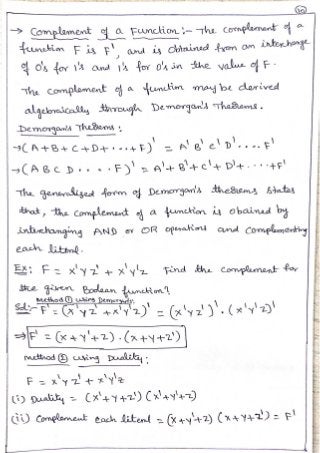 → Complement of a Function :- The complement of a
function F is F', and is obtained from an interchange
of 0's for 1's and 1's for 0's in the value of F.
The complement of a function may be derived
algebraically through Demorgan's Theorems.
Demorgan's Theorems :
→(A+B+C+D+....+F)' = A' B' C' D'.... F'
→(A B C D .....F)' = A'+B'+C'+D'+.....+F'
The generalised form of Demorgan's theorems states
that, the complement of a function is obained by
interchanging AND or OR operations and complementing
each literal.
Ex: F = x'yz' + x'y'z Find the complement for
the given Boolean function?
method ① using Demorgan's
Sol:- F' = (x'yz' + x'y'z)' = (x'yz')'. (x'y'z)'
⇒ F' = (x+y'+z).(x+y+z')
method ② using Duality:
F = x'yz' + x'y'z
(i) Duality = (x'+y+z') (x'+y'+z)
(ii) Complement each literal = (x+y'+z) (x+y+z') = F'